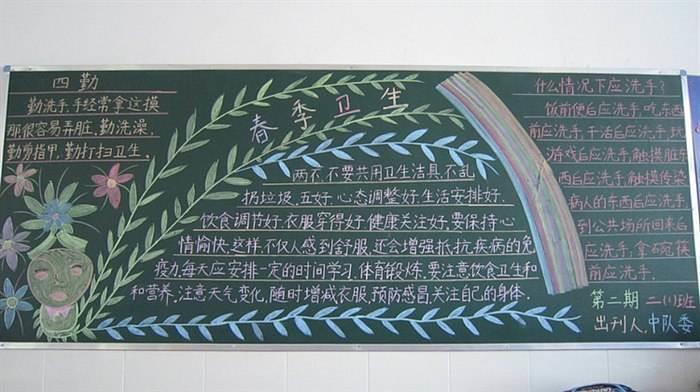 四勤
勤洗手,手经常拿这摸
那很容易弄脏,勤洗澡,
勤剪指甲,勤打扫卫生,
春季卫生
两不,不要共用卫生洁具,不乱
扔垃圾,五好,心态调整好,生活安排好,
饮食调节好,衣服穿得好,健康关注好,要保持心
情愉快,这样,不仅人感到舒服,还会增强抵抗疾病的免
疫力,每天应安排一定的时间学习,体育锻炼,要注意饮食卫生和
和营养,注意天气变化,随时增减衣服,预防感冒,关注自己的身体.
什么情况下应洗手?
饭前便后应洗手,吃东西
前应洗手,干活后应洗手,玩
游戏后应洗手,触摸脏东
西后应洗手,触摸传染
病人的东西后应洗手
到公共场所回来后
应洗手,拿碗筷
前应洗手.
第二期 二(1)班
出刊人,中队委